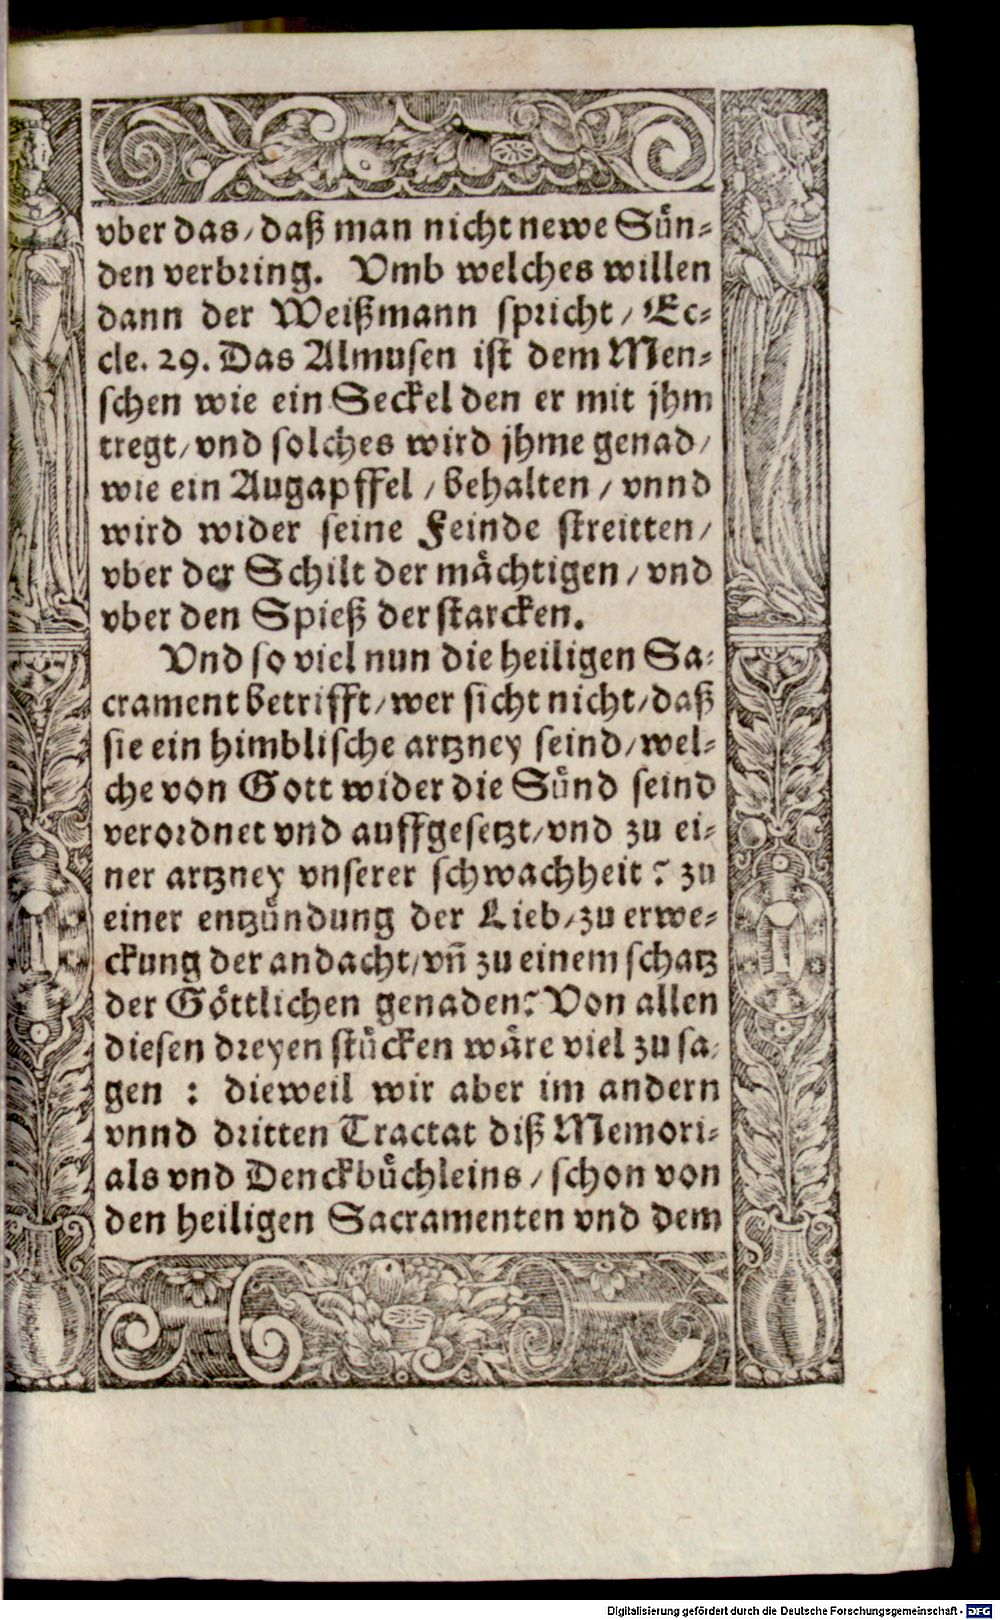 vber das/ daß man nicht newe Sün⸗
den verbring. Vmb welches willen
dann der Weißmann spricht/ Ec⸗
cle. 29. Das Almusen ist dem Men⸗
schen wie ein Seckel den er mit jhm
tregt/ vnd solches wird jhme genad/
wie ein Augapffel/ behalten/ vnnd
wird wider seine Feinde streitten/
vber der Schilt der mächtigen/ vnd
vber den Spieß der starcken.
Vnd so viel nun die heiligen Sa⸗
crament betrifft/ wer sicht nicht/ daß
sie ein himblische artzney seind/ wel⸗
che von Gott wider die Sünd seind
verordnet vnd auffgesetzt/ vnd zu ei⸗
ner artzney vnserer schwachheit? zu
einer entzündung der Lieb/ zu erwe⸗
ckung der andacht/ vñ zu einem schatz
der Göttlichen genaden? Von allen
diesen dreyen stücken wäre viel zu sa⸗
gen : dieweil wir aber im andern
vnnd dritten Tractat diß Memori⸗
als vnd Denckbüchleins/ schon von
den heiligen Sacramenten vnd dem
Digitalisierung gefördert durch die Deutsche Forschungsgemeinschaft - DFG